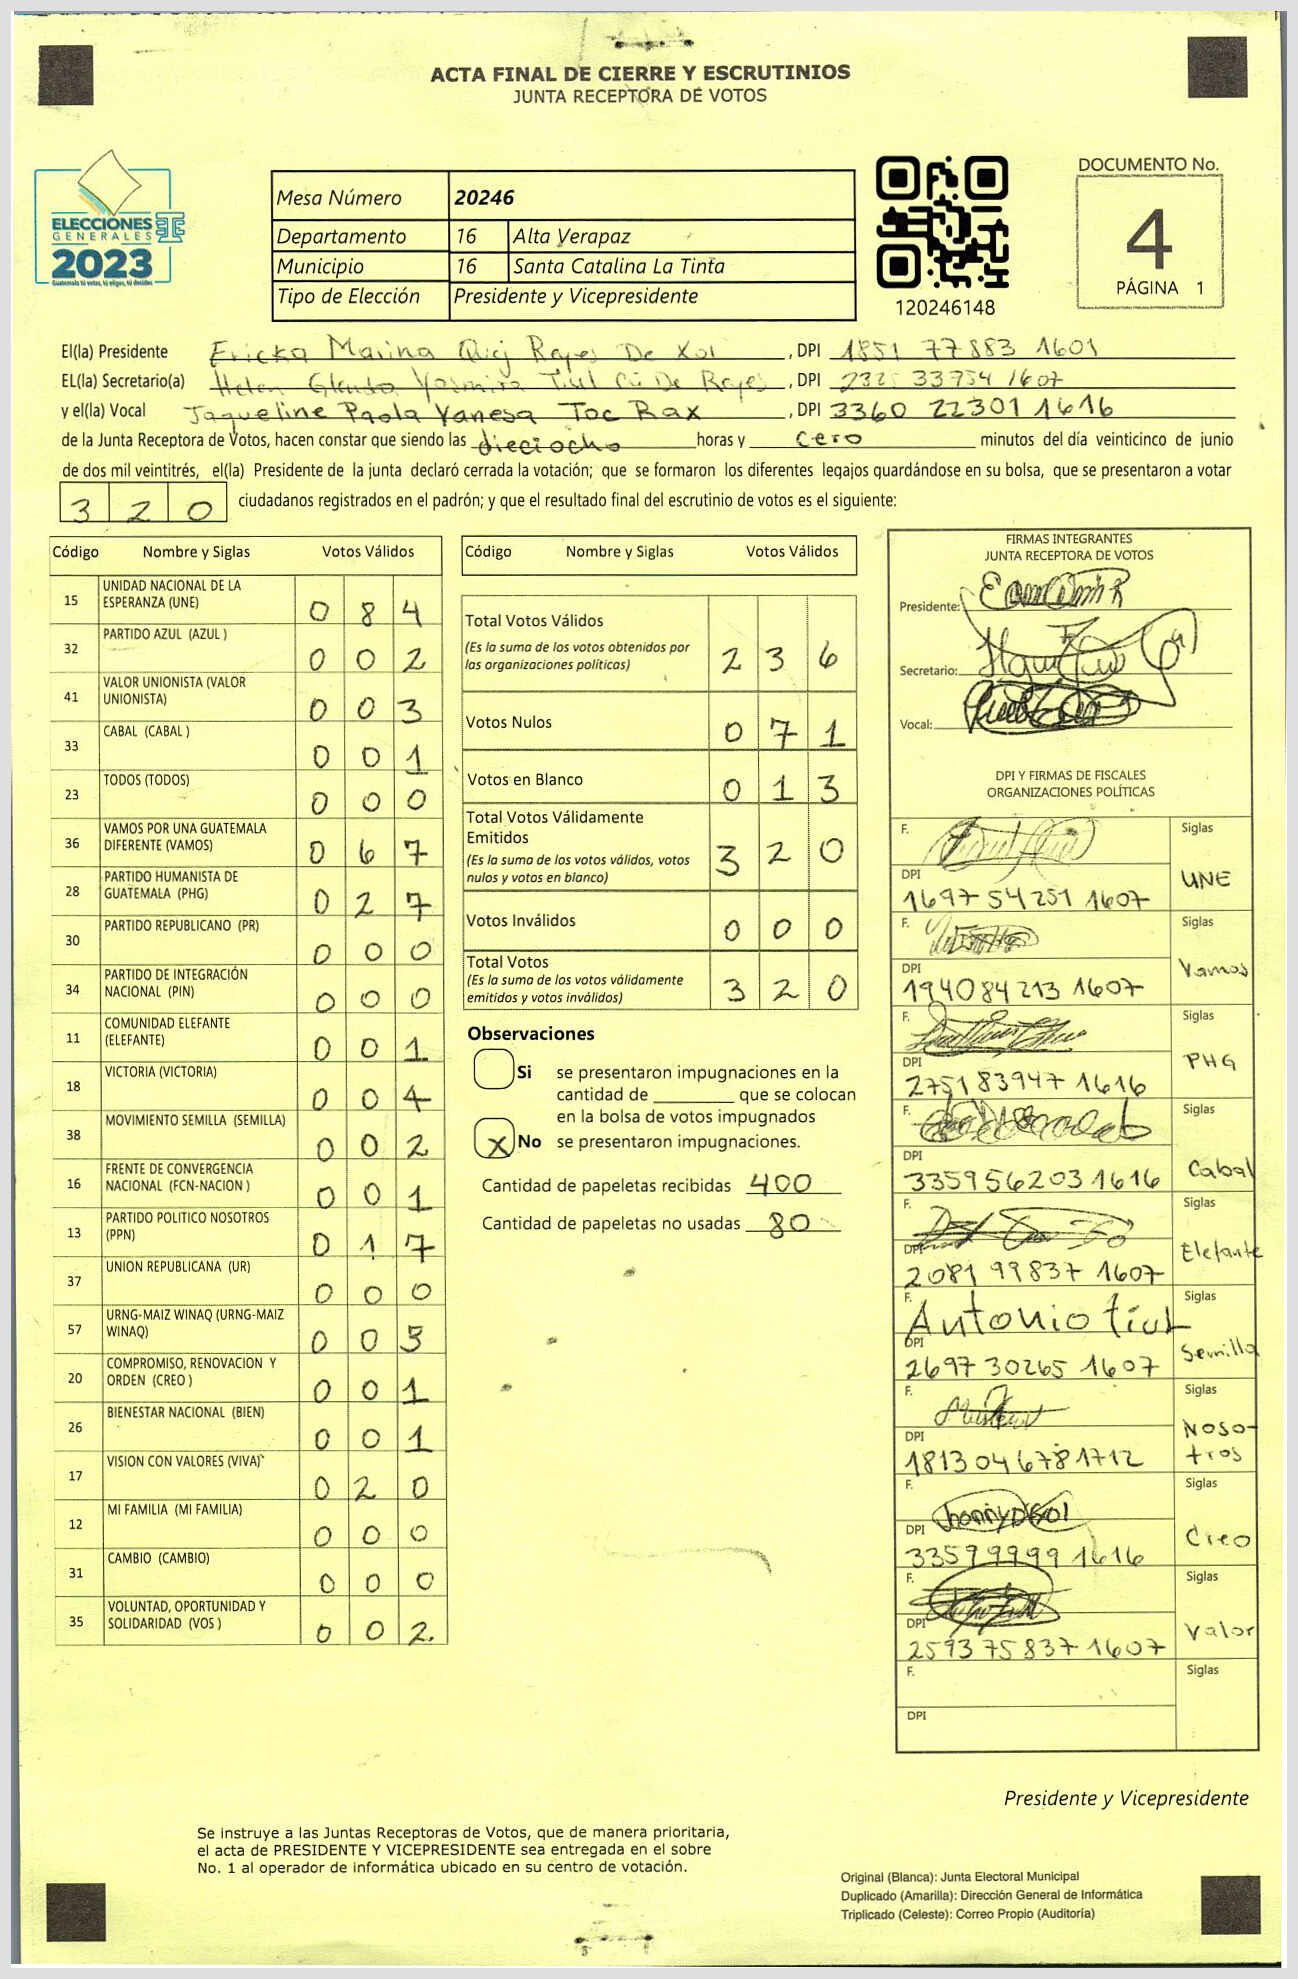 ACTA FINAL DE CIERRE Y ESCRUTINIOS
JUNTA RECEPTORA DE VOTOS
ELECCIONES
GENERALES
2023
Guatemala tú votas, tú eliges, tú decides
Mesa Número 20246
Departamento 16 Alta Verapaz
Municipio 16 Santa Catalina La Tinta
Tipo de Elección Presidente y Vicepresidente
120246148
DOCUMENTO No.
4
PÁGINA 1
El(la) Presidente Ericka Marina Reyes De Xol, DPI 1851 77883 1601
EL(la) Secretario(a) Helen De Reyes, DPI 2325 33754 1607
y el(la) Vocal Jaqueline Paola Vanesa Toc Rax, DPI 3360 22301 1616
de la Junta Receptora de Votos, hacen constar que siendo las dieciocho horas y cero minutos del día veinticinco de junio
de dos mil veintitrés, el(la) Presidente de la junta declaró cerrada la votación; que se formaron los diferentes legajos guardándose en su bolsa, que se presentaron a votar
320 ciudadanos registrados en el padrón; y que el resultado final del escrutinio de votos es el siguiente:
Código Nombre y Siglas Votos Válidos
15 UNIDAD NACIONAL DE LA ESPERANZA (UNE) 084
32 PARTIDO AZUL (AZUL ) 002
41 VALOR UNIONISTA (VALOR UNIONISTA) 003
33 CABAL (CABAL ) 001
23 TODOS (TODOS) 000
36 VAMOS POR UNA GUATEMALA DIFERENTE (VAMOS) 067
28 PARTIDO HUMANISTA DE GUATEMALA (PHG) 027
30 PARTIDO REPUBLICANO (PR) 000
34 PARTIDO DE INTEGRACIÓN NACIONAL (PIN) 000
11 COMUNIDAD ELEFANTE (ELEFANTE) 001
18 VICTORIA (VICTORIA) 004
38 MOVIMIENTO SEMILLA (SEMILLA) 002
16 FRENTE DE CONVERGENCIA NACIONAL (FCN-NACION ) 001
13 PARTIDO POLITICO NOSOTROS (PPN) 017
37 UNION REPUBLICANA (UR) 000
57 URNG-MAIZ WINAQ (URNG-MAIZ WINAQ) 003
20 COMPROMISO, RENOVACION Y ORDEN (CREO ) 001
26 BIENESTAR NACIONAL (BIEN) 001
17 VISION CON VALORES (VIVA) 020
12 MI FAMILIA (MI FAMILIA) 000
31 CAMBIO (CAMBIO) 000
35 VOLUNTAD, OPORTUNIDAD Y SOLIDARIDAD (VOS ) 002.
Código Nombre y Siglas Votos Válidos
Total Votos Válidos 236
(Es la suma de los votos obtenidos por
las organizaciones políticas)
Votos Nulos 071
Votos en Blanco 013
Total Votos Válidamente
Emitidos 320
(Es la suma de los votos válidos, votos
nulos y votos en blanco)
Votos Inválidos 000
Total Votos 320
(Es la suma de los votos válidamente
emitidos y votos inválidos)
Observaciones
Si se presentaron impugnaciones en la
cantidad de ________ que se colocan
en la bolsa de votos impugnados
x No se presentaron impugnaciones.
Cantidad de papeletas recibidas 400
Cantidad de papeletas no usadas 80
FIRMAS INTEGRANTES
JUNTA RECEPTORA DE VOTOS
Presidente:
Secretario:
Vocal:
DPI Y FIRMAS DE FISCALES
ORGANIZACIONES POLÍTICAS
F. Siglas
DPI 1697 54251 1607 UNE
F. Siglas
DPI 1940 84213 1607 Vamos
F. Siglas
DPI 2751 83947 1616 PHG
F. Siglas
DPI 3359 56203 1616 Cabal
F. Siglas
DPI 2081 99837 1607 Elefante
F. Antonio tiul Siglas
DPI 2697 30265 1607 Semilla
F. Siglas
DPI 1813 04678 1712 Noso-
tros
F. Siglas
DPI 3359 9999 1616 Creo
F. Siglas
DPI 2593 75837 1607 Valor
F. Siglas
DPI
Presidente y Vicepresidente
Se instruye a las Juntas Receptoras de Votos, que de manera prioritaria,
el acta de PRESIDENTE Y VICEPRESIDENTE sea entregada en el sobre
No. 1 al operador de informática ubicado en su centro de votación.
Original (Blanca): Junta Electoral Municipal
Duplicado (Amarilla): Dirección General de Informática
Triplicado (Celeste): Correo Propio (Auditoría)